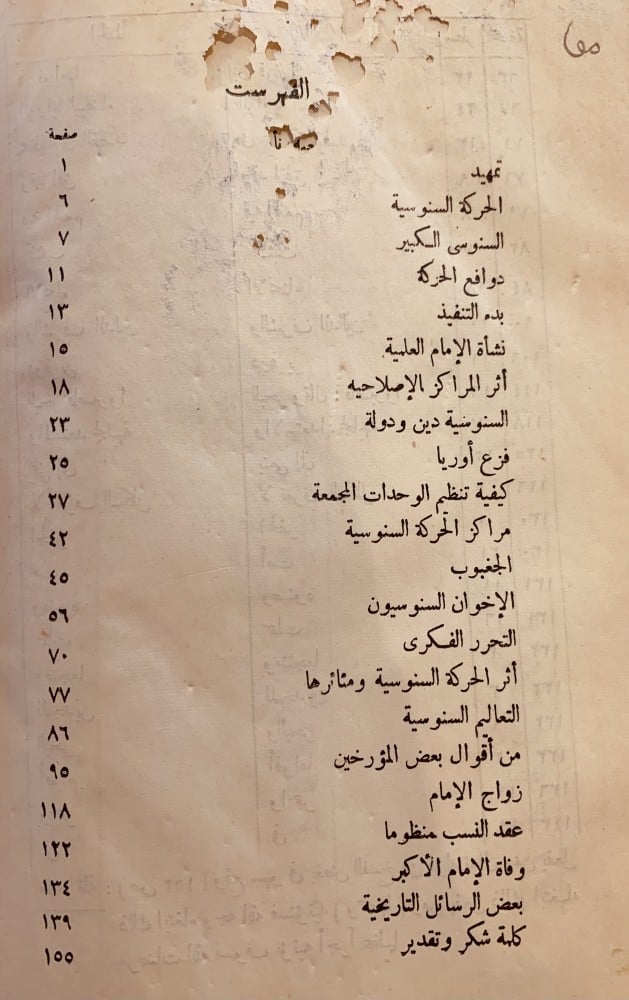 الفهرست
صفحة
تمهيد ١
الحركة السنوسية ٦
السنوسى الكبير ٧
دوافع الحركة ١١
بدء التنفيذ ١٣
نشأة الإمام العلمية ١٥
أثر المراكز الإصلاحيه ١٨
السنوسية دين ودولة ٢٣
فزع أوربا ٢٥
كيفية تنظيم الوحدات المجمعة ٢٧
مراكز الحركة السنوسية ٤٢
الجغبوب ٤٥
الإخوان السنوسيون ٥٦
التحرر الفكرى ٧٠
أثر الحركة السنوسية ومئاثرها ٧٧
التعاليم السنوسية ٨٦
من أقوال بعض المؤرخين ٩٥
زواج الإمام ١١٨
عقد النسب منظوما ١٢٢
وفاة الإمام الأكبر ١٣٤
بعض الرسائل التاريخية ١٣٩
كلمة شكر وتقدير ١٥٥